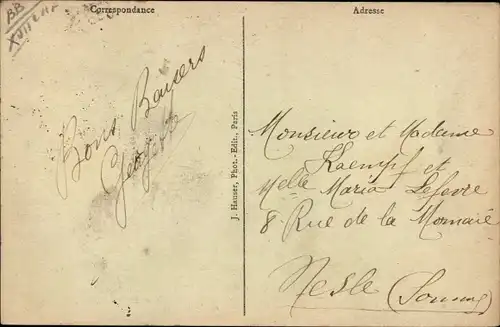 BB
Correspondance
Adresse
Bons Baisers
J. Hauser, Phot.-Edit., Paris
Monsieur et Madame
Kaempf et
Melle Maria Lefevre
8 Rue de la Monnaie
Nesle (Somme)